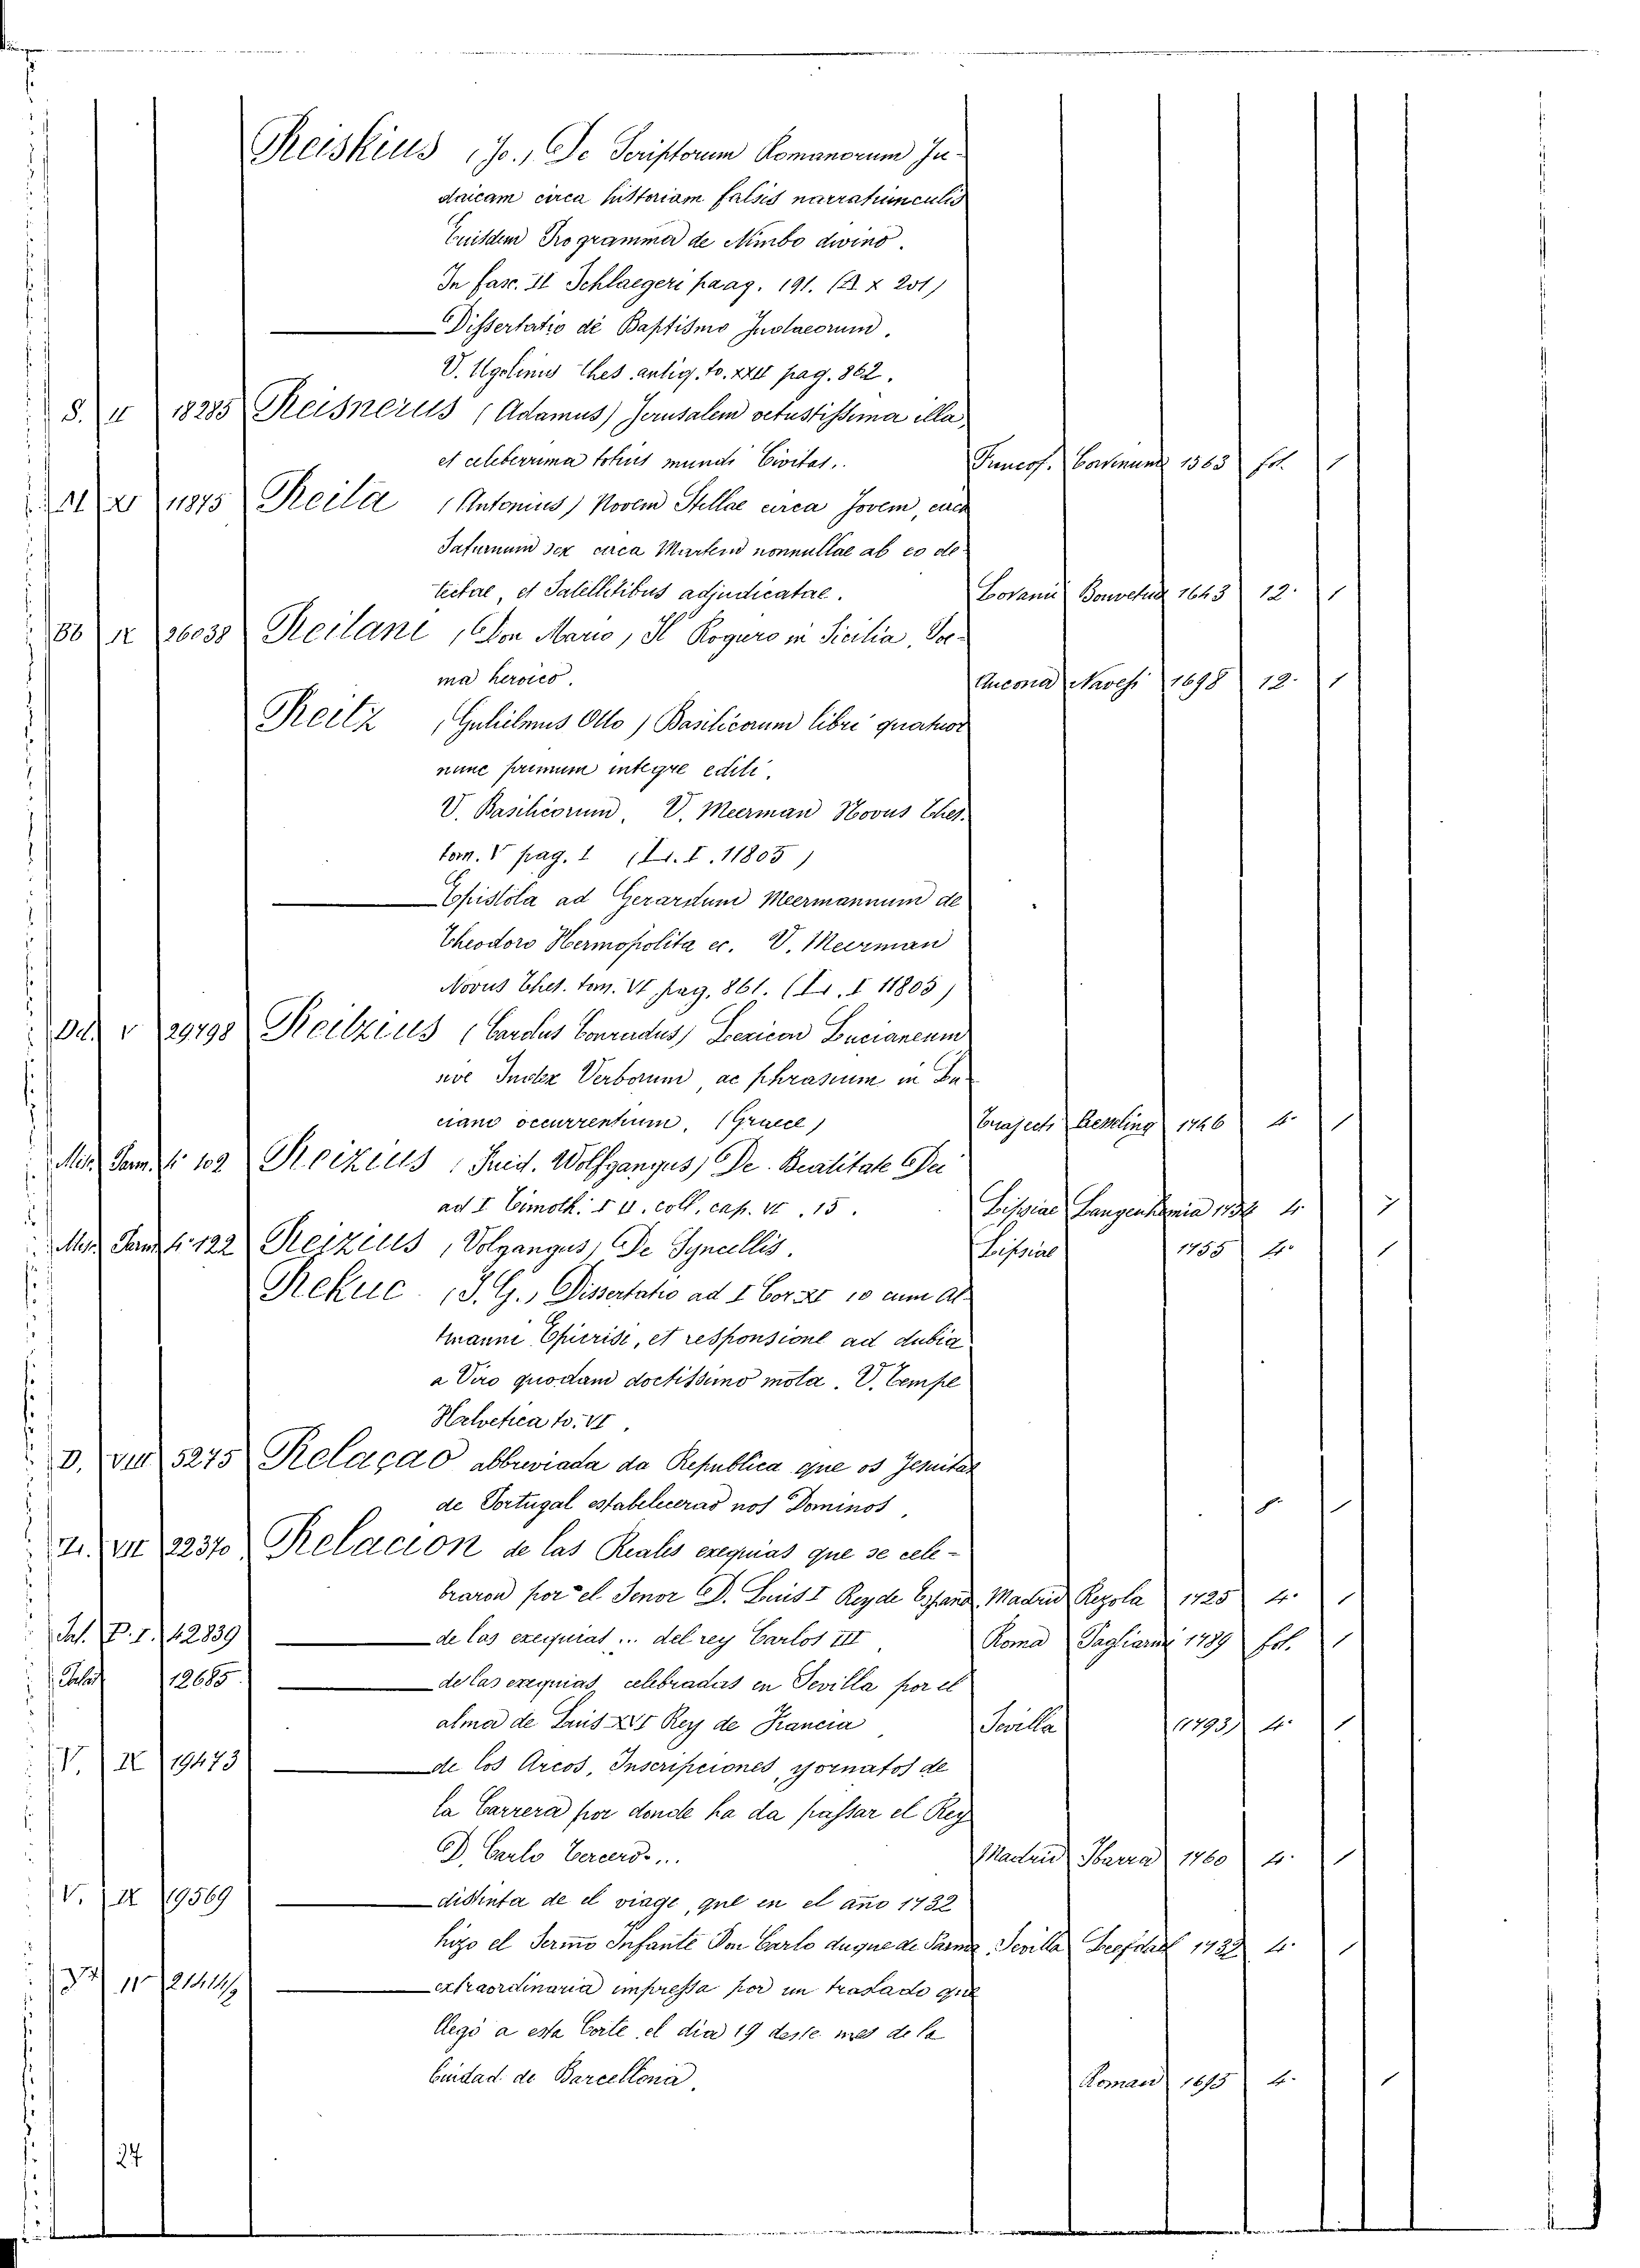 Reiskius (Jo.) De Scriptorum Romanorum Ju-
daicam circa historiam falsis narratiunculis
Euisdem Programma de Nimbo divino.
In fasc. II Schlaegeri paag. 191. (A. X 201)
Dissertatio de Baptismo Judaeorum.
V. Ugolinus Thes. antiq. to. XXII pag. 862.
S. II 18285 Reisnerus (Adamus) Jerusalem vetustissima illa,
et celeberrima totius mundi Civitas. Francof. 1563 fol. 1
11875 Reita (Antonius) Novem Stellae circa Jovem, circa
Saturnum sex circa Martem nonnullae ab eo de-
tectae, et Satellitibus adjudicatae. Lovanii 1643 12. 1
IX 26038 Reitani (Don Mario) Il Rogiero in Sicilia, Poe-
ma heroico. Ancona Navesi 1698 12. 1
Reitz (Gulielmus Otto) Basilicorum libri quatuor
nunc primum integre editi.
V. Basilicorum. V. Meerman Novus Thes.
tom. V pag. 1 (L. I. 11805)
Epistola ad Gerardum Meermannum de
Theodoro Hermopolita ec. V. Meerman
Novus Thes. tom. VI pag. 861. (L. I 11805)
Dd. V 29798 Reitzius (Carolus Conradus) Lexicon Lucianeum
sive Index Verborum, ac phrasium in Lu-
ciano occurrentium. (Graece) Traject. 1746 4. 1
102 Reizius (Frid. Wolfgangus) De
ad I Timoth. I V. coll. cap. VI. 15. Lipsiae Langenhemia 4. 1
122 Reizius (Volgangus) De Syncellis. Lipsiae 1755 4. 1
Rekuc (J. G.) Dissertatio ad I Cor. XI 10 cum Al-
tmanni Epicrisi, et responsione ad dubia
a Viro quodam doctissimo mota. V. Tempe
Helvetica to. VI.
D. VIII 5275 Relaçao abbreviada da Republica que os Jesuitas
de Portugal estabeleceras nos Dominos, 8. 1
VII 22370 Relacion de las Reales exequias que se cele-
braron por el Senor D. Luis I Rey de Espana. Madrid Rezola 1725 4. 1
P. I. 42839 de las exequias... del rey Carlos III Roma Pagliarini 1789 fol. 1
12685 de las exequias celebradas en Sevilla por el
alma de Luis XVI Rey de Francia, Sevilla (1793) 4. 1
V. IX 19473 de los Arcos, Inscripciones, yornatos de
la Carrera por donde ha da passar el Rey
D. Carlo Tercero... Madrid Ibarra 1760 4. 1
V. IX 19569 distinta de el viage, que en el año 1732
hizo el Sermo Infante Don Carlo duque de Parma, Sevilla 1732 4. 1
extraordinaria impressa por un traslado que
llegò a esta Corte, el dia 19 deste mes de la
Ciudad de Barcellona. Roman 1695 4. 1
27